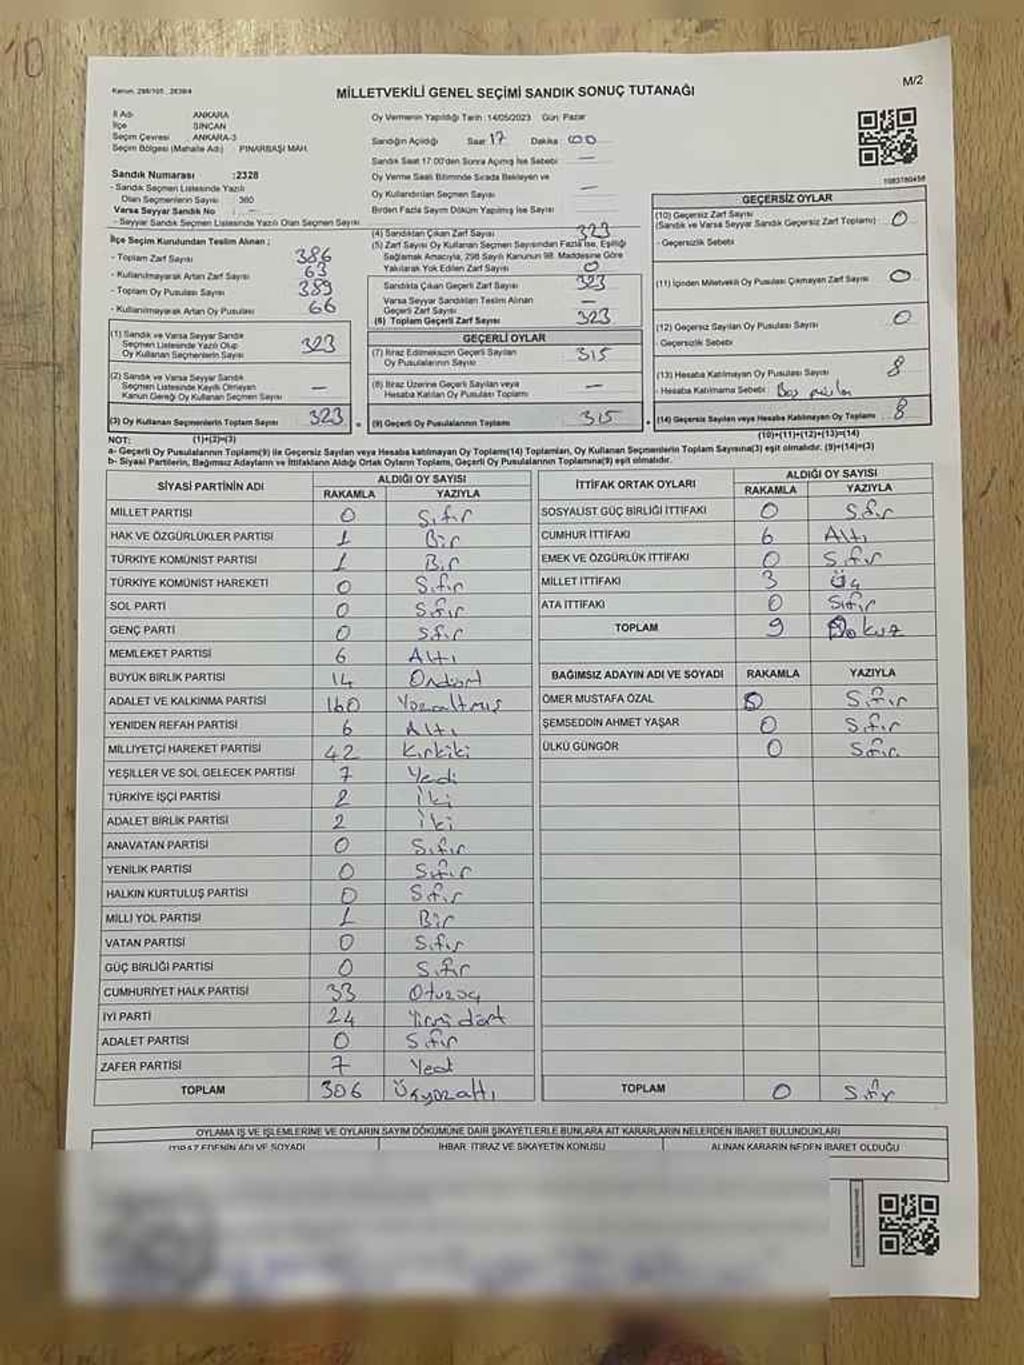 Kanun: 298/105 , 2839/4
M/2
MİLLETVEKİLİ GENEL SEÇİMİ SANDIK SONUÇ TUTANAĞI
İl Adı ANKARA
İlçe SİNCAN
Seçim Çevresi ANKARA-3
Seçim Bölgesi (Mahalle Adı) PINARBAŞI MAH.
Sandık Numarası :2328
- Sandık Seçmen Listesinde Yazılı
Olan Seçmenlerin Sayısı : 360
Varsa Seyyar Sandık No : —
- Seyyar Sandık Seçmen Listesinde Yazılı Olan Seçmen Sayısı
İlçe Seçim Kurulundan Teslim Alınan ;
- Toplam Zarf Sayısı 386
- Kullanılmayarak Artan Zarf Sayısı 63
- Toplam Oy Pusulası Sayısı 389
- Kullanılmayarak Artan Oy Pusulası 66
(1) Sandık ve Varsa Seyyar Sandık
Seçmen Listesinde Yazılı Olup
Oy Kullanan Seçmenlerin Sayısı 323
(2) Sandık ve Varsa Seyyar Sandık
Seçmen Listesinde Kayıtlı Olmayan
Kanun Gereği Oy Kullanan Seçmen Sayısı —
(3) Oy Kullanan Seçmenlerin Toplam Sayısı 323
(1)+(2)=(3)
Oy Vermenin Yapıldığı Tarih :14/05/2023 Gün: Pazar
Sandığın Açıldığı Saat 17 Dakika 00
Sandık Saat 17:00'den Sonra Açılmış İse Sebebi —
Oy Verme Saati Bitiminde Sırada Bekleyen ve
Oy Kullandırılan Seçmen Sayısı —
Birden Fazla Sayım Döküm Yapılmış İse Sayısı
(4) Sandıktan Çıkan Zarf Sayısı 323
(5) Zarf Sayısı Oy Kullanan Seçmen Sayısından Fazla İse, Eşitliği
Sağlamak Amacıyla, 298 Sayılı Kanunun 98. Maddesine Göre
Yakılarak Yok Edilen Zarf Sayısı 0
Sandıkta Çıkan Geçerli Zarf Sayısı 323
Varsa Seyyar Sandıktan Teslim Alınan
Geçerli Zarf Sayısı —
(6) Toplam Geçerli Zarf Sayısı 323
GEÇERLİ OYLAR
(7) İtiraz Edilmeksizin Geçerli Sayılan
Oy Pusulalarının Sayısı 315
(8) İtiraz Üzerine Geçerli Sayılan veya
Hesaba Katılan Oy Pusulası Toplamı —
= (9) Geçerli Oy Pusulalarının Toplamı 315
1083780456
GEÇERSİZ OYLAR
(10) Geçersiz Zarf Sayısı
(Sandık ve Varsa Seyyar Sandık Geçersiz Zarf Toplamı) 0
- Geçersizlik Sebebi
(11) İçinden Milletvekili Oy Pusulası Çıkmayan Zarf Sayısı 0
(12) Geçersiz Sayılan Oy Pusulası Sayısı 0
- Geçersizlik Sebebi
(13) Hesaba Katılmayan Oy Pusulası Sayısı 8
- Hesaba Katılmama Sebebi : Boş
+ (14) Geçersiz Sayılan veya Hesaba Katılmayan Oy Toplamı 8
(10)+(11)+(12)+(13)=(14)
NOT:
a- Geçerli Oy Pusulaları Toplamı(9) ile Geçersiz Sayılan veya Hesaba katılmayan Oy Toplamı(14) Toplamları, Oy Kullanan Seçmenlerin Toplam Sayısına(3) eşit olmalıdır. (9)+(14)=(3)
b- Siyasi Partilerin, Bağımsız Adayların ve İttifakların Aldığı Ortak Oyların Toplamı, Geçerli Oy Pusulalarının Toplamına(9) eşit olmalıdır.
SİYASİ PARTİNİN ADI ALDIĞI OY SAYISI
RAKAMLA YAZIYLA
MİLLET PARTİSİ 0 Sıfır
HAK VE ÖZGÜRLÜKLER PARTİSİ 1 Bir
TÜRKİYE KOMÜNİST PARTİSİ 1 Bir
TÜRKİYE KOMÜNİST HAREKETİ 0 Sıfır
SOL PARTİ 0 Sıfır
GENÇ PARTİ 0 Sıfır
MEMLEKET PARTİSİ 6 Altı
BÜYÜK BİRLİK PARTİSİ 14 Ondört
ADALET VE KALKINMA PARTİSİ 160 Yüzaltmış
YENİDEN REFAH PARTİSİ 6 Altı
MİLLİYETÇİ HAREKET PARTİSİ 42 Kırkiki
YEŞİLLER VE SOL GELECEK PARTİSİ 7 Yedi
TÜRKİYE İŞÇİ PARTİSİ 2 İki
ADALET BİRLİK PARTİSİ 2 İki
ANAVATAN PARTİSİ 0 Sıfır
YENİLİK PARTİSİ 0 Sıfır
HALKIN KURTULUŞ PARTİSİ 0 Sıfır
MİLLİ YOL PARTİSİ 1 Bir
VATAN PARTİSİ 0 Sıfır
GÜÇ BİRLİĞİ PARTİSİ 0 Sıfır
CUMHURİYET HALK PARTİSİ 33 Otuzüç
İYİ PARTİ 24 Yirmi dört
ADALET PARTİSİ 0 Sıfır
ZAFER PARTİSİ 7 Yedi
TOPLAM 306 Üçyüzaltı
İTTİFAK ORTAK OYLARI ALDIĞI OY SAYISI
RAKAMLA YAZIYLA
SOSYALİST GÜÇ BİRLİĞİ İTTİFAKI 0 Sıfır
CUMHUR İTTİFAKI 6 Altı
EMEK VE ÖZGÜRLÜK İTTİFAKI 0 Sıfır
MİLLET İTTİFAKI 3 Üç
ATA İTTİFAKI 0 Sıfır
TOPLAM 9 Dokuz
BAĞIMSIZ ADAYIN ADI VE SOYADI RAKAMLA YAZIYLA
ÖMER MUSTAFA ÖZAL 0 Sıfır
ŞEMSEDDİN AHMET YAŞAR 0 Sıfır
ÜLKÜ GÜNGÖR 0 Sıfır
TOPLAM 0 Sıfır
OYLAMA İŞ VE İŞLEMLERİNE VE OYLARIN SAYIM DÖKÜMÜNE DAİR ŞİKAYETLERLE BUNLARA AİT KARARLARIN NELERDEN İBARET BULUNDUKLARI
İTİRAZ EDENİN ADI VE SOYADI İHBAR, İTİRAZ VE ŞİKAYETİN KONUSU ALINAN KARARIN NEDEN İBARET OLDUĞU